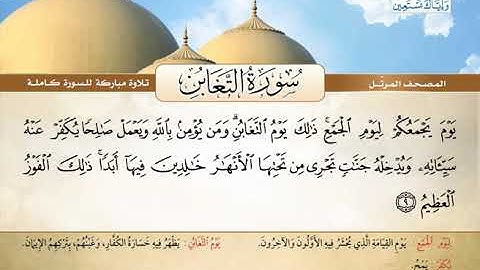 وَإِيَّاكَ نَسْتَعِينُ
المصحف المرتل
سُورَةُ التَّغَابُنِ
تلاوة مباركة للسورة كاملة
يَوْمَ يَجْمَعُكُمْ لِيَوْمِ الْجَمْعِ ۖ ذَٰلِكَ يَوْمُ التَّغَابُنِ ۗ وَمَن يُؤْمِنۢ بِاللَّهِ وَيَعْمَلْ صَالِحًا يُكَفِّرْ عَنْهُ
سَيِّـَٔاتِهِۦ وَيُدْخِلْهُ جَنَّـٰتٍ تَجْرِى مِن تَحْتِهَا الْأَنْهَـٰرُ خَـٰلِدِينَ فِيهَآ أَبَدًا ۚ ذَٰلِكَ الْفَوْزُ
الْعَظِيمُ ۝٩
لِيَوْمِ الْجَمْعِ : يَوْمِ الْقِيَامَةِ الَّذِي يُحْشَرُ فِيهِ الْأَوَّلُونَ وَالْآخِرُونَ. يَوْمُ التَّغَابُنِ : يَظْهَرُ فِيهِ خَسَارَةُ الْكُفَّارِ، وَغَبْنُهُمْ، بِتَرْكِهِمُ الْإِيمَانَ.
يُكَفِّرْ : يَمْحُ.